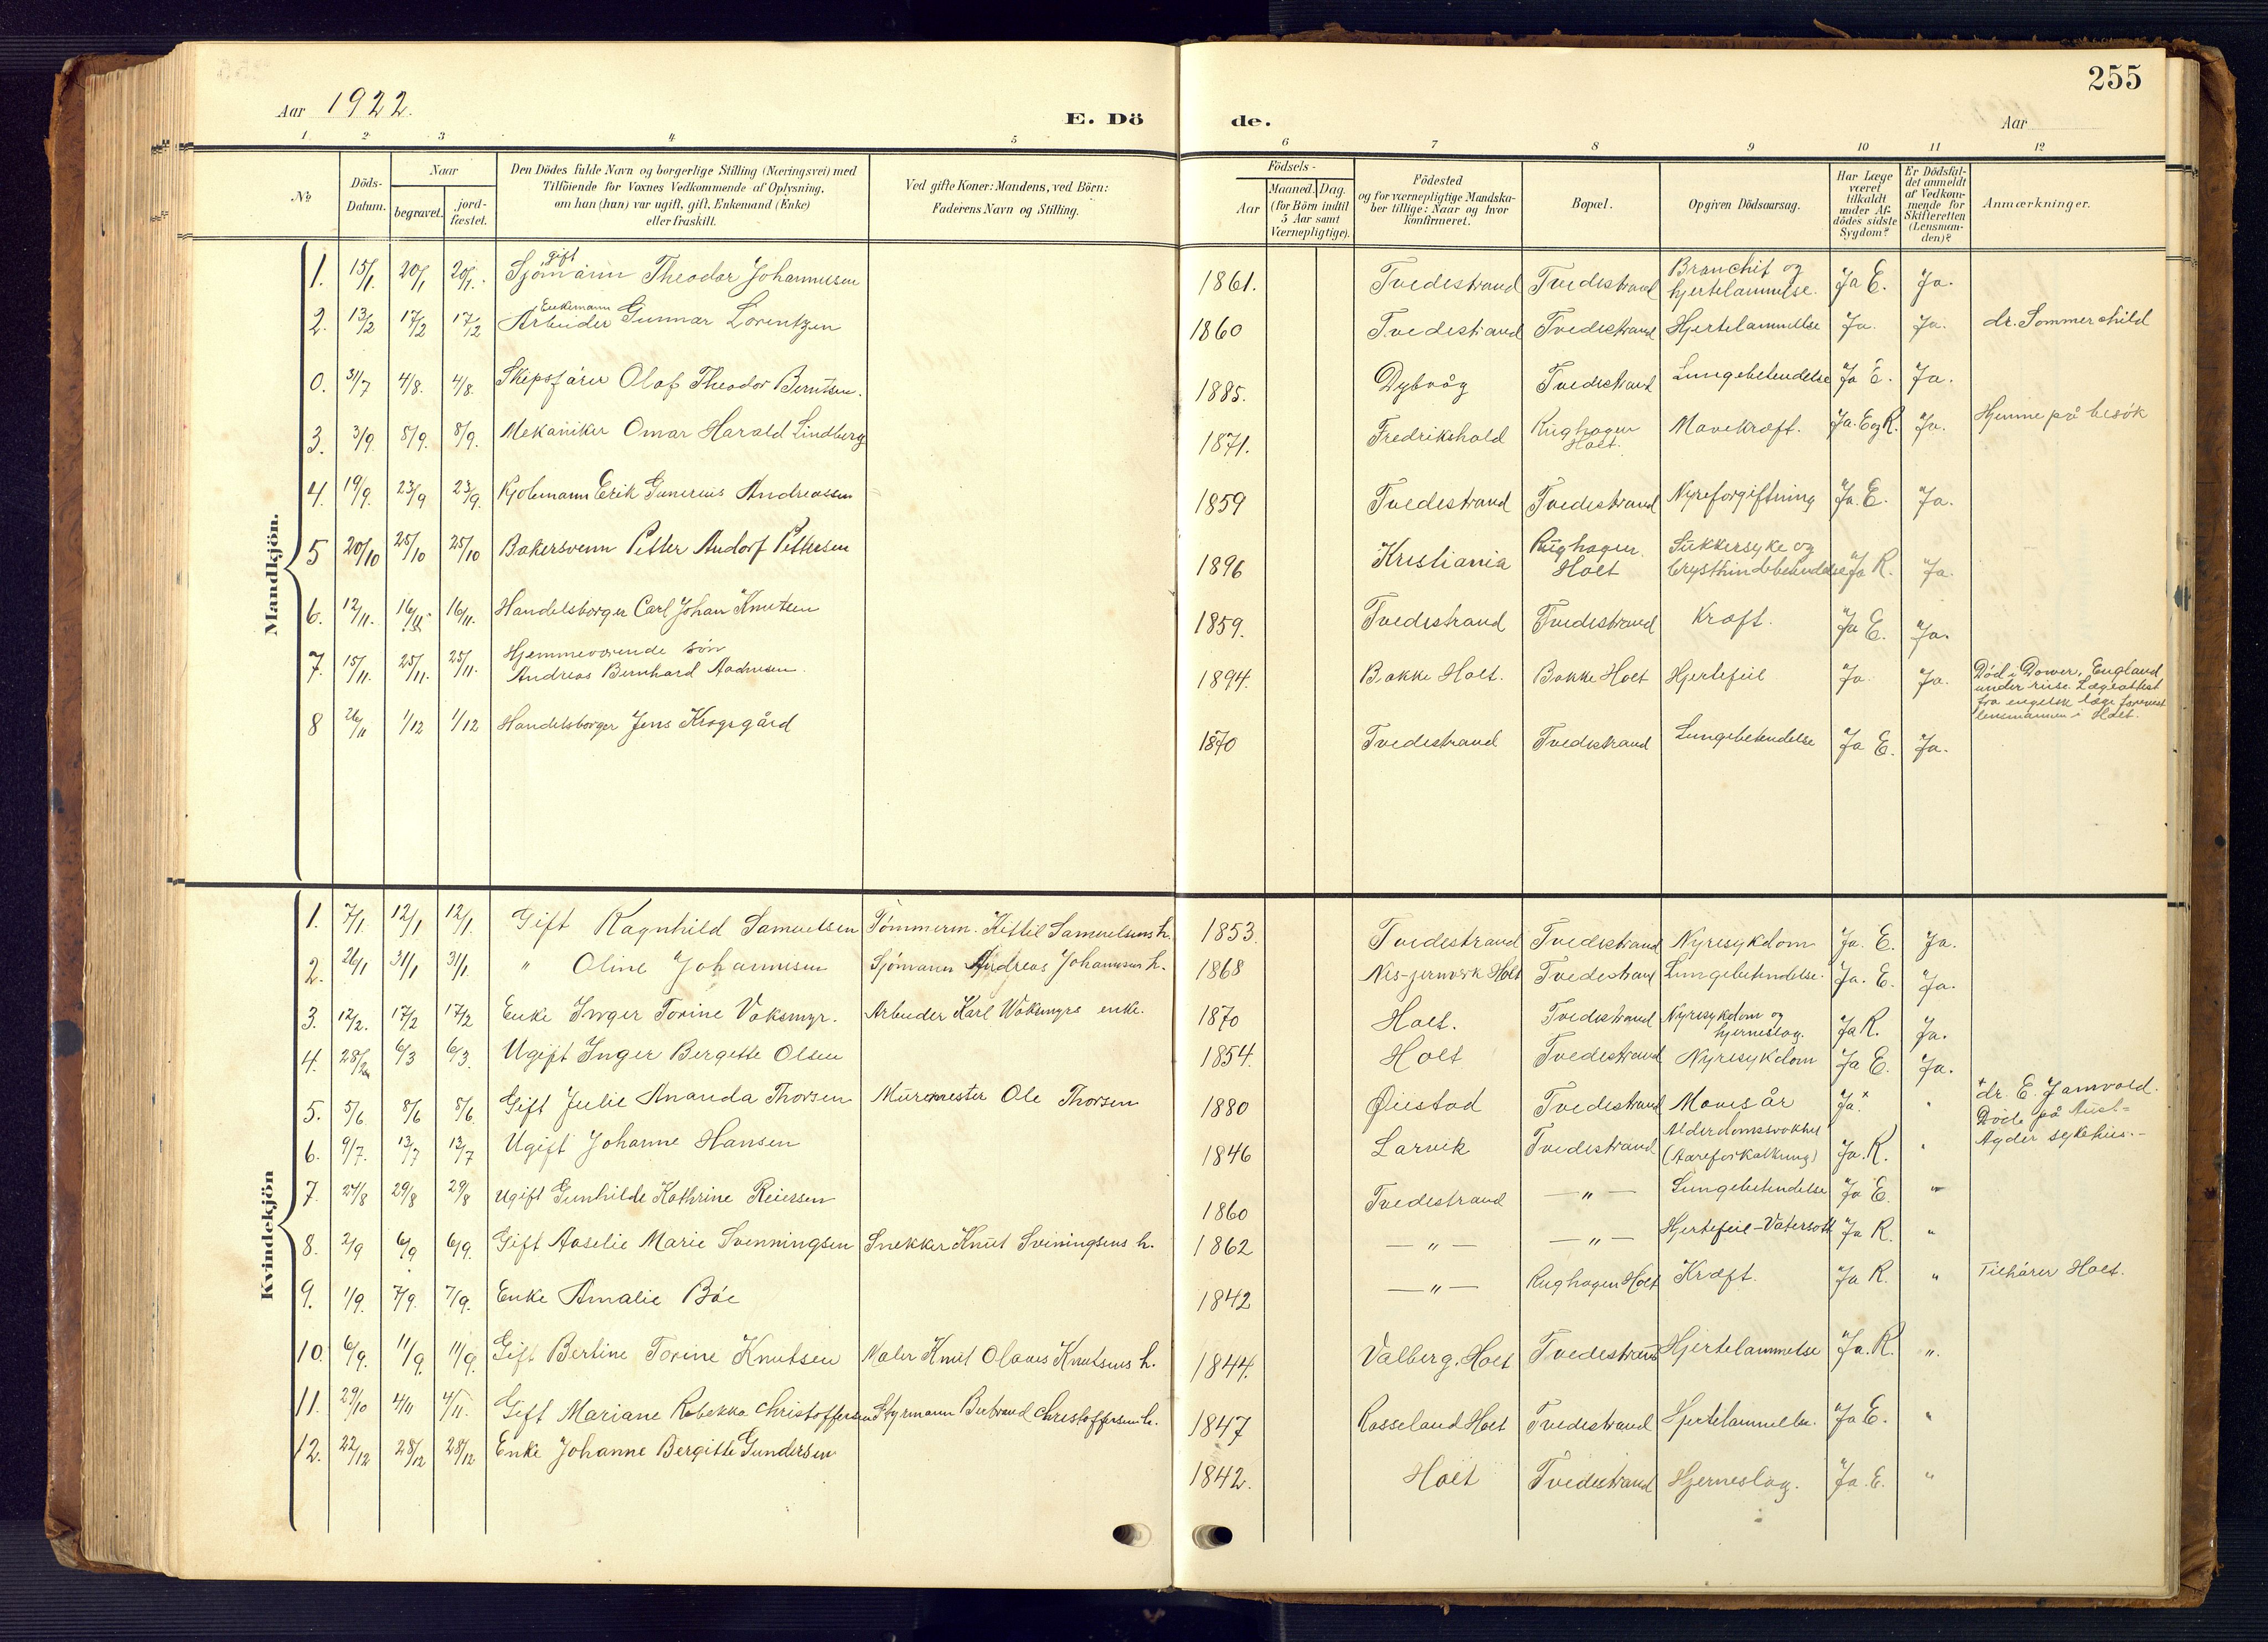 255
Aar 1922.
E. Dö de.
Aar
1 2 3 4 5 6 7 8 9 10 11 12
No
Döds-Datum.
Naar
begravet.
jord-fæstet.
Den Dödes fulde Navn og borgerlige Stilling (Næringsvei) med
Tilföiende for Voxnes Vedkommende af Oplysning,
om han (hun) var ugift, gift, Enkemand (Enke)
eller fraskilt.
Ved gifte Koner: Mandens, ved Börn:
Faderens Navn og Stilling.
Födsels-
Aar
Maaned. Dag.
(for Börn indtil
5 Aar samt
Værnepligtige).
Födested
og for værnepligtige Mandska-
ber tillige: Naar og hvor
konfirmeret.
Bopæl.
Opgiven Dödsaarsag.
Har Læge
været
tilkaldt
under Af-
dödes sidste
Sygdom?
Er Dödsfal-
det anmeldt
af Vedkom-
mende for
Skifteretten
(Lensman-
den)?
Anmærkninger.
Mandkjön.
1. 15/1. 20/1 20/1. gift Sjömann Theodor Johannesen 1861. Tvedestrand Tvedestrand Bronchit og hjertelammelse. Ja E. Ja.
2. 13/2 17/2 17/2 Enkemann Arbeider Gunnar Lorentzen 1860 Tvedestrand Tvedestrand Hjertelammelse Ja. Ja. dr. Sommerschild
0. 31/7 4/8. 4/8. Skipsförer Olaf Theodor Berntsen. 1885. Dybvåg Tvedestrand Lungebetendelse Ja E. Ja.
3. 3/9. 8/9. 8/9. Mekaniker Omar Harald Lindberg 1871. Fredrikshald Rughagen Holt. Mavekræft. Ja. E og R. Ja. Hjemme på besök
4. 19/9. 23/9 23/9. Kjøbmann Erik Gunerius Andreassen 1859 Tvedestrand Tvedestrand Nyreforgiftning Ja. E. Ja.
5 20/10 25/10 25/10 Bakersvenn Petter Andorf Pettersen 1896 Kristiania Rughagen. Holt Sukkersyke og brysthindebetendelse Ja R. Ja.
6. 12/11. 16/11 16/11. Handelsborger Carl Johan Knutsen 1859. Tvedestrand Tvedestrand Kræft. Ja E. Ja.
7. 15/11. 25/11. 25/11. Hjemmeværende sön Andreas Bernhard 1894. Bakke Holt. Bakke Holt Hjertefeil Ja. Ja. Död i Dower, England under reise. Lægeattest fra engelsk læge forevist lensmannen i Holt.
8 26/11 1/12 1/12 Handelsborger Jens Krogsgård 1870 Tvedestrand Tvedestrand Lungebetendelse Ja E. Ja.
Kvindekjön
1. 7/1. 12/1 12/1. Gift Ragnhild Samuelsen Tömmerm. Kittil Samuelsens h. 1853. Tvedestrand Tvedestrand Nyresykdom Ja. E. Ja.
2. 26/1 31/1 31/1. " Oline Johannesen Sjömann Andreas Johannesens h. 1868 Nes jernverk Holt Tvedestrand Lungebetendelse. Ja. E. Ja.
3. 12/2. 17/2 17/2 Enke Inger Torine Voksmyr. Arbeider Karl Woksmyrs enke. 1870 Holt. Tvedestrand Nyresykdom og hjerneslag. Ja R. Ja.
4. 28/2 6/3 6/3. Ugift Inger Bergette Olsen 1854. Holt Tvedestrand Nyresykdom Ja E. Ja.
5. 5/6. 8/6 8/6 Gift Julie Amanda Thorsen Murermester Ole Thorsen 1880 Øiestad Tvedestrand Mavesår Ja.x " x dr. E. Jannvold. Döde på Aust-Agder sykehus.-
6. 9/7. 13/7 13/7 Ugift Johanne Hansen 1846 Larvik Tvedestrand Alderdomssvakhet (Aareforkalkning) Ja. R. "
7. 24/8 29/8 29/8 Ugift Gunhilde Kathrine Reiersen 1860 Tvedestrand — " — Lungebetendelse Ja E. "
8. 2/9 6/9 6/9. Gift Aaselie Marie Svenningsen Snekker Knut Sveiningsens h. 1862 — " — — " — Hjertefeil-Vatersott Ja R. "
9. 1/9. 7/9. 7/9. Enke Amalie Böe 1842 — " — Rughagen Holt Kræft. Ja R. " Tilhörer Holt.
10. 6/9. 11/9 11/9. Gift Bertine Torine Knutsen Maler Knut Olaves Knutsens h. 1844. Valberg, Holt Tvedestrand Hjertelammelse Ja. R. ".
11. 29/10 4/11 4/11. Gift Mariane Rebekka Christoffersen Styrmann Bertrand Christoffersens h. 1847 Rosseland Holt Tvedestrand Hjertelammelse. Ja E. "
12. 22/12 28/12 28/12 Enke Johanne Bergitte Gundersen 1842. Holt Tvedestrand Hjerneslag. Ja. E. "